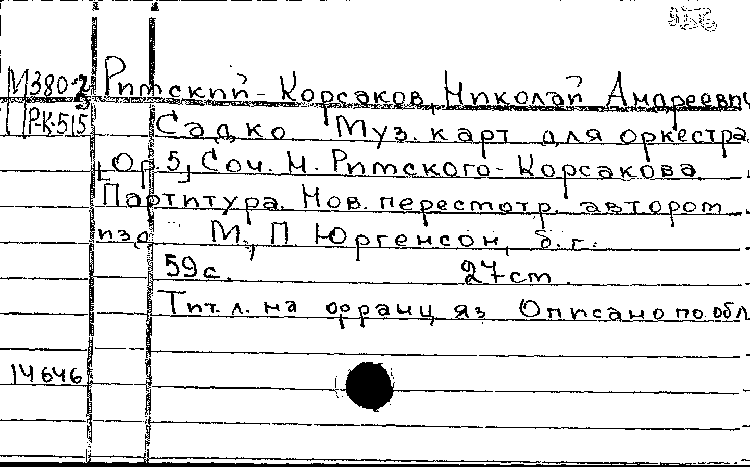 М380-2 Римский-Корсаков, Николай Андреевич
Р-К-515 Садко Муз. карт для оркестра
[Ор. 5] Соч. Н. Римского-Корсакова
Партитура. Нов. пересмотр. автором
изд М., П Юргенсон, б. г.
59 с. 27 cm
Тит. л. на франц яз Описано по обл
14646